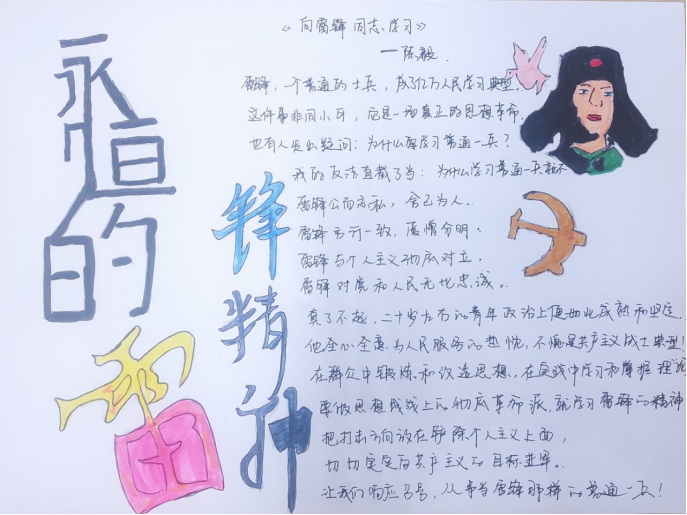 永恒的
雷
锋精神
《向雷锋同志学习》
—陈毅
雷锋,一个普通的士兵,成了亿万人民学习典型.
这件事非同小可,应是一场真正的思想革命.
也有人突出疑问:为什么要学习普通一兵?
我的反诘直截了当:为什么学习普通一兵就不
雷锋公而忘私,舍己为人.
雷锋言行一致,爱憎分明.
雷锋与个人主义彻底对立,
雷锋对党和人民无比忠诚。
真了不起,二十岁左右的青年政治上便如此成熟和坚定.
他全心全意为人民服务的热忱,不愧是共产主义战士典型!
在群众中锻炼和改造思想,在实践中学习和掌握理论
要做思想战线上的彻底革命派,就学习雷锋的精神
把打击方向放在铲除个人主义上面,
切切实实向共产主义的目标进军。
让我们响应号召,从争当雷锋那样的普通一兵!